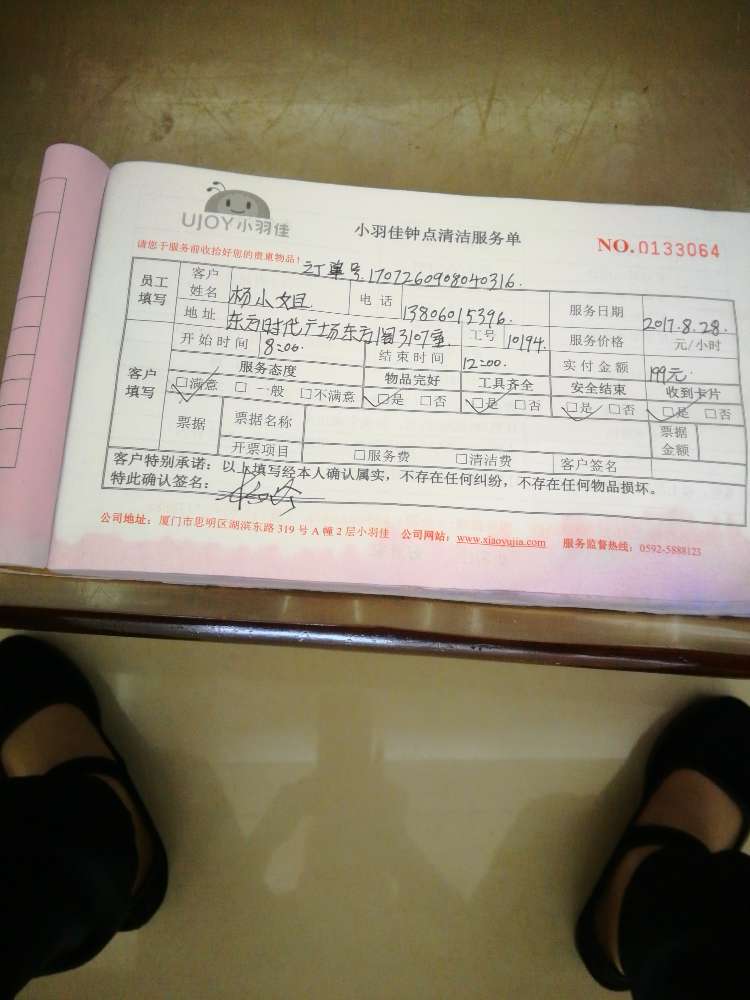 UJOY小羽佳
小羽佳钟点清洁服务单
NO.0133064
请您于服务前收拾好您的贵重物品！
订单号.1707260908040316.
员工填写 客户姓名 杨小姐 电话 13806015396. 服务日期 2017.8.28.
地址 东方时代广场东方阁3107室 工号 10194. 服务价格 元/小时
客户填写 开始时间 8:00 结束时间 12:00. 实付金额 199元
服务态度 物品完好 工具齐全 安全结束 收到卡片
☑满意 □一般 □不满意 ☑是 □否 ☑是 □否 ☑是 □否 ☑是 □否
票据 票据名称 票据金额
开票项目 □服务费 □清洁费 客户签名
客户特别承诺：以上填写经本人确认属实，不存在任何纠纷，不存在任何物品损坏。
特此确认签名：
公司地址：厦门市思明区湖滨东路319号A幢2层小羽佳 公司网站：www.xiaoyujia.com 服务监督热线：0592-5888123